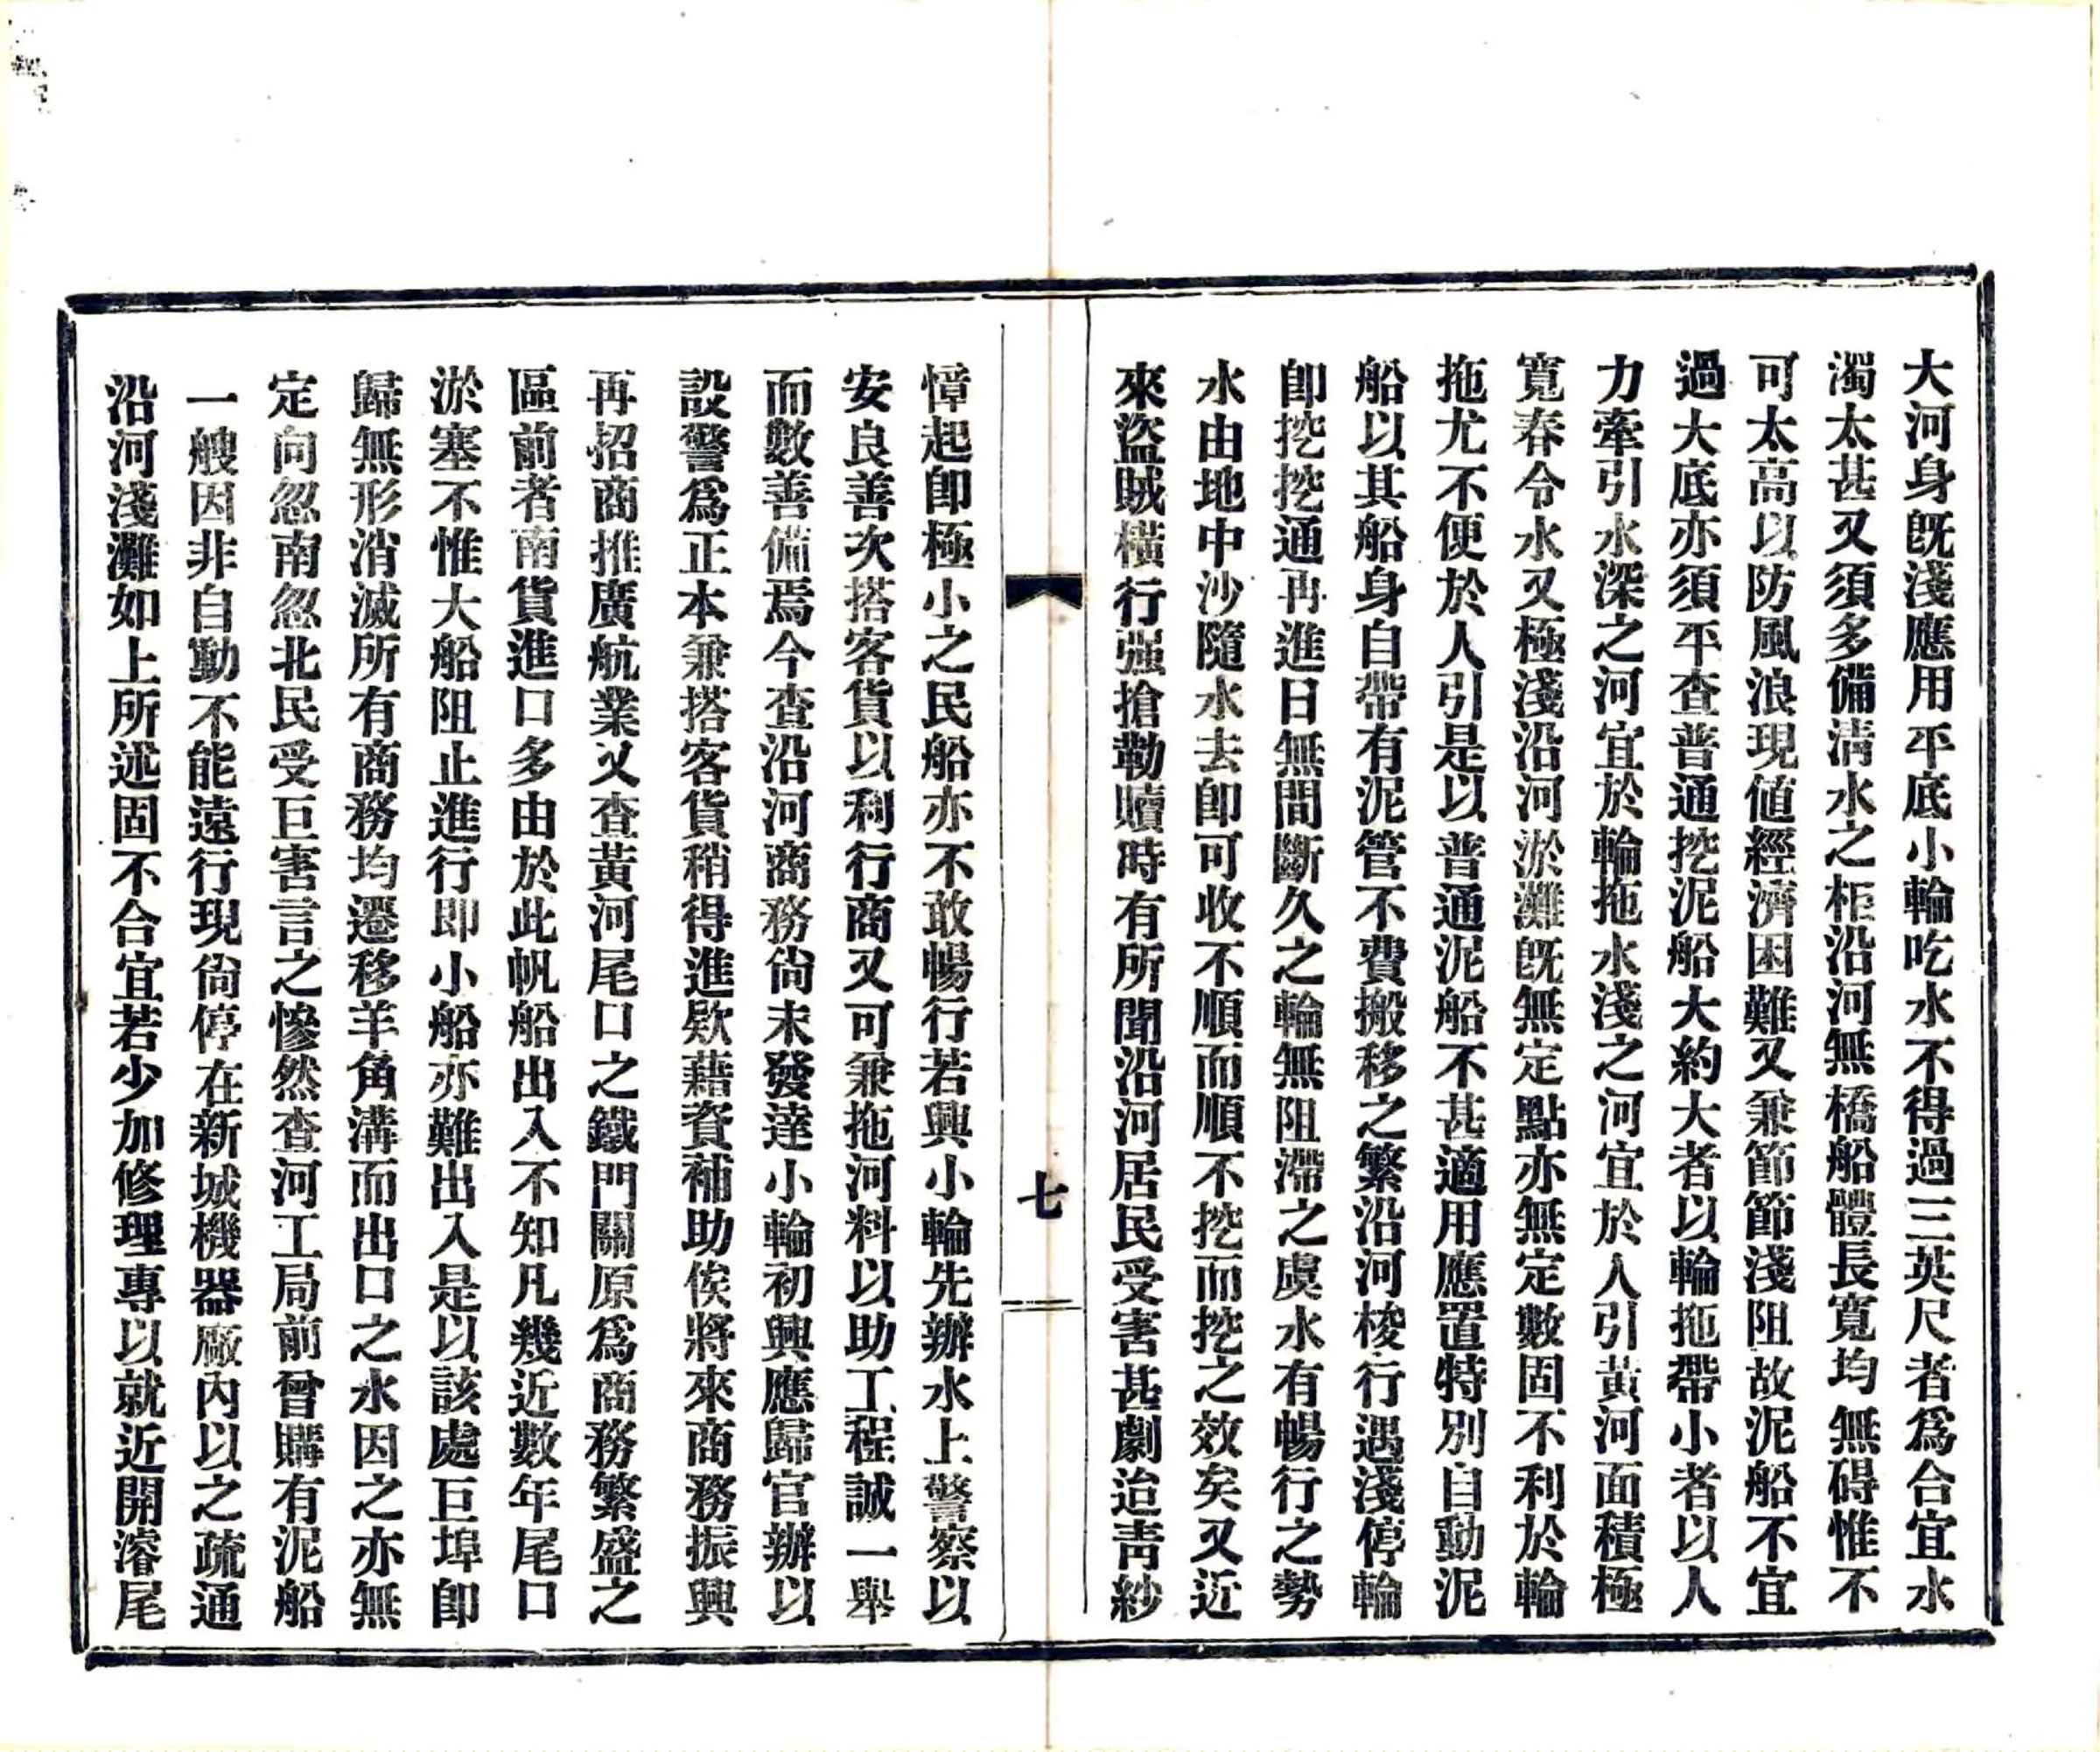 大河身既淺應用平底小輪吃水不得過三英尺者爲合宜水
濁太甚又須多備清水之柜沿河無橋船體長寬均無碍惟不
可太高以防風浪現值經濟困難又兼節節淺阻故泥船不宜
過大底亦須平查普通挖泥船大約大者以輪拖帶小者以人
力牽引水深之河宜於輪拖水淺之河宜於人引黃河面積極
寬春令水又極淺沿河淤灘既無定點亦無定數固不利於輪
拖尤不便於人引是以普通泥船不甚適用應置特別自動泥
船以其船身自帶有泥管不費搬移之繁沿河梭行遇淺停輪
卽挖挖通再進日無間斷久之輪無阻滯之虞水有暢行之勢
水由地中沙隨水去卽可收不順而順不挖而挖之效矣又近
來盜賊橫行强搶勒贖時有所聞沿河居民受害甚劇迨靑紗
幛起卽極小之民船亦不敢暢行若興小輪先辦水上警察以
安良善次搭客貨以利行商又可兼拖河料以助工程誠一舉
而數善備焉今查沿河商務尙未發達小輪初興應歸官辦以
設警爲正本兼搭客貨稍得進欵藉資補助俟將來商務振興
再招商推廣航業又查黃河尾口之鐵門關原爲商務繁盛之
區前者南貨進口多由於此帆船出入不知凡幾近數年尾口
淤塞不惟大船阻止進行即小船亦難出入是以該處巨埠卽
歸無形消滅所有商務均遷移羊角溝而出口之水因之亦無
定向忽南忽北民受巨害言之慘然查河工局前曾購有泥船
一艘因非自動不能遠行現尙停在新城機器廠內以之疏通
沿河淺灘如上所述固不合宜若少加修理專以就近開濬尾
七